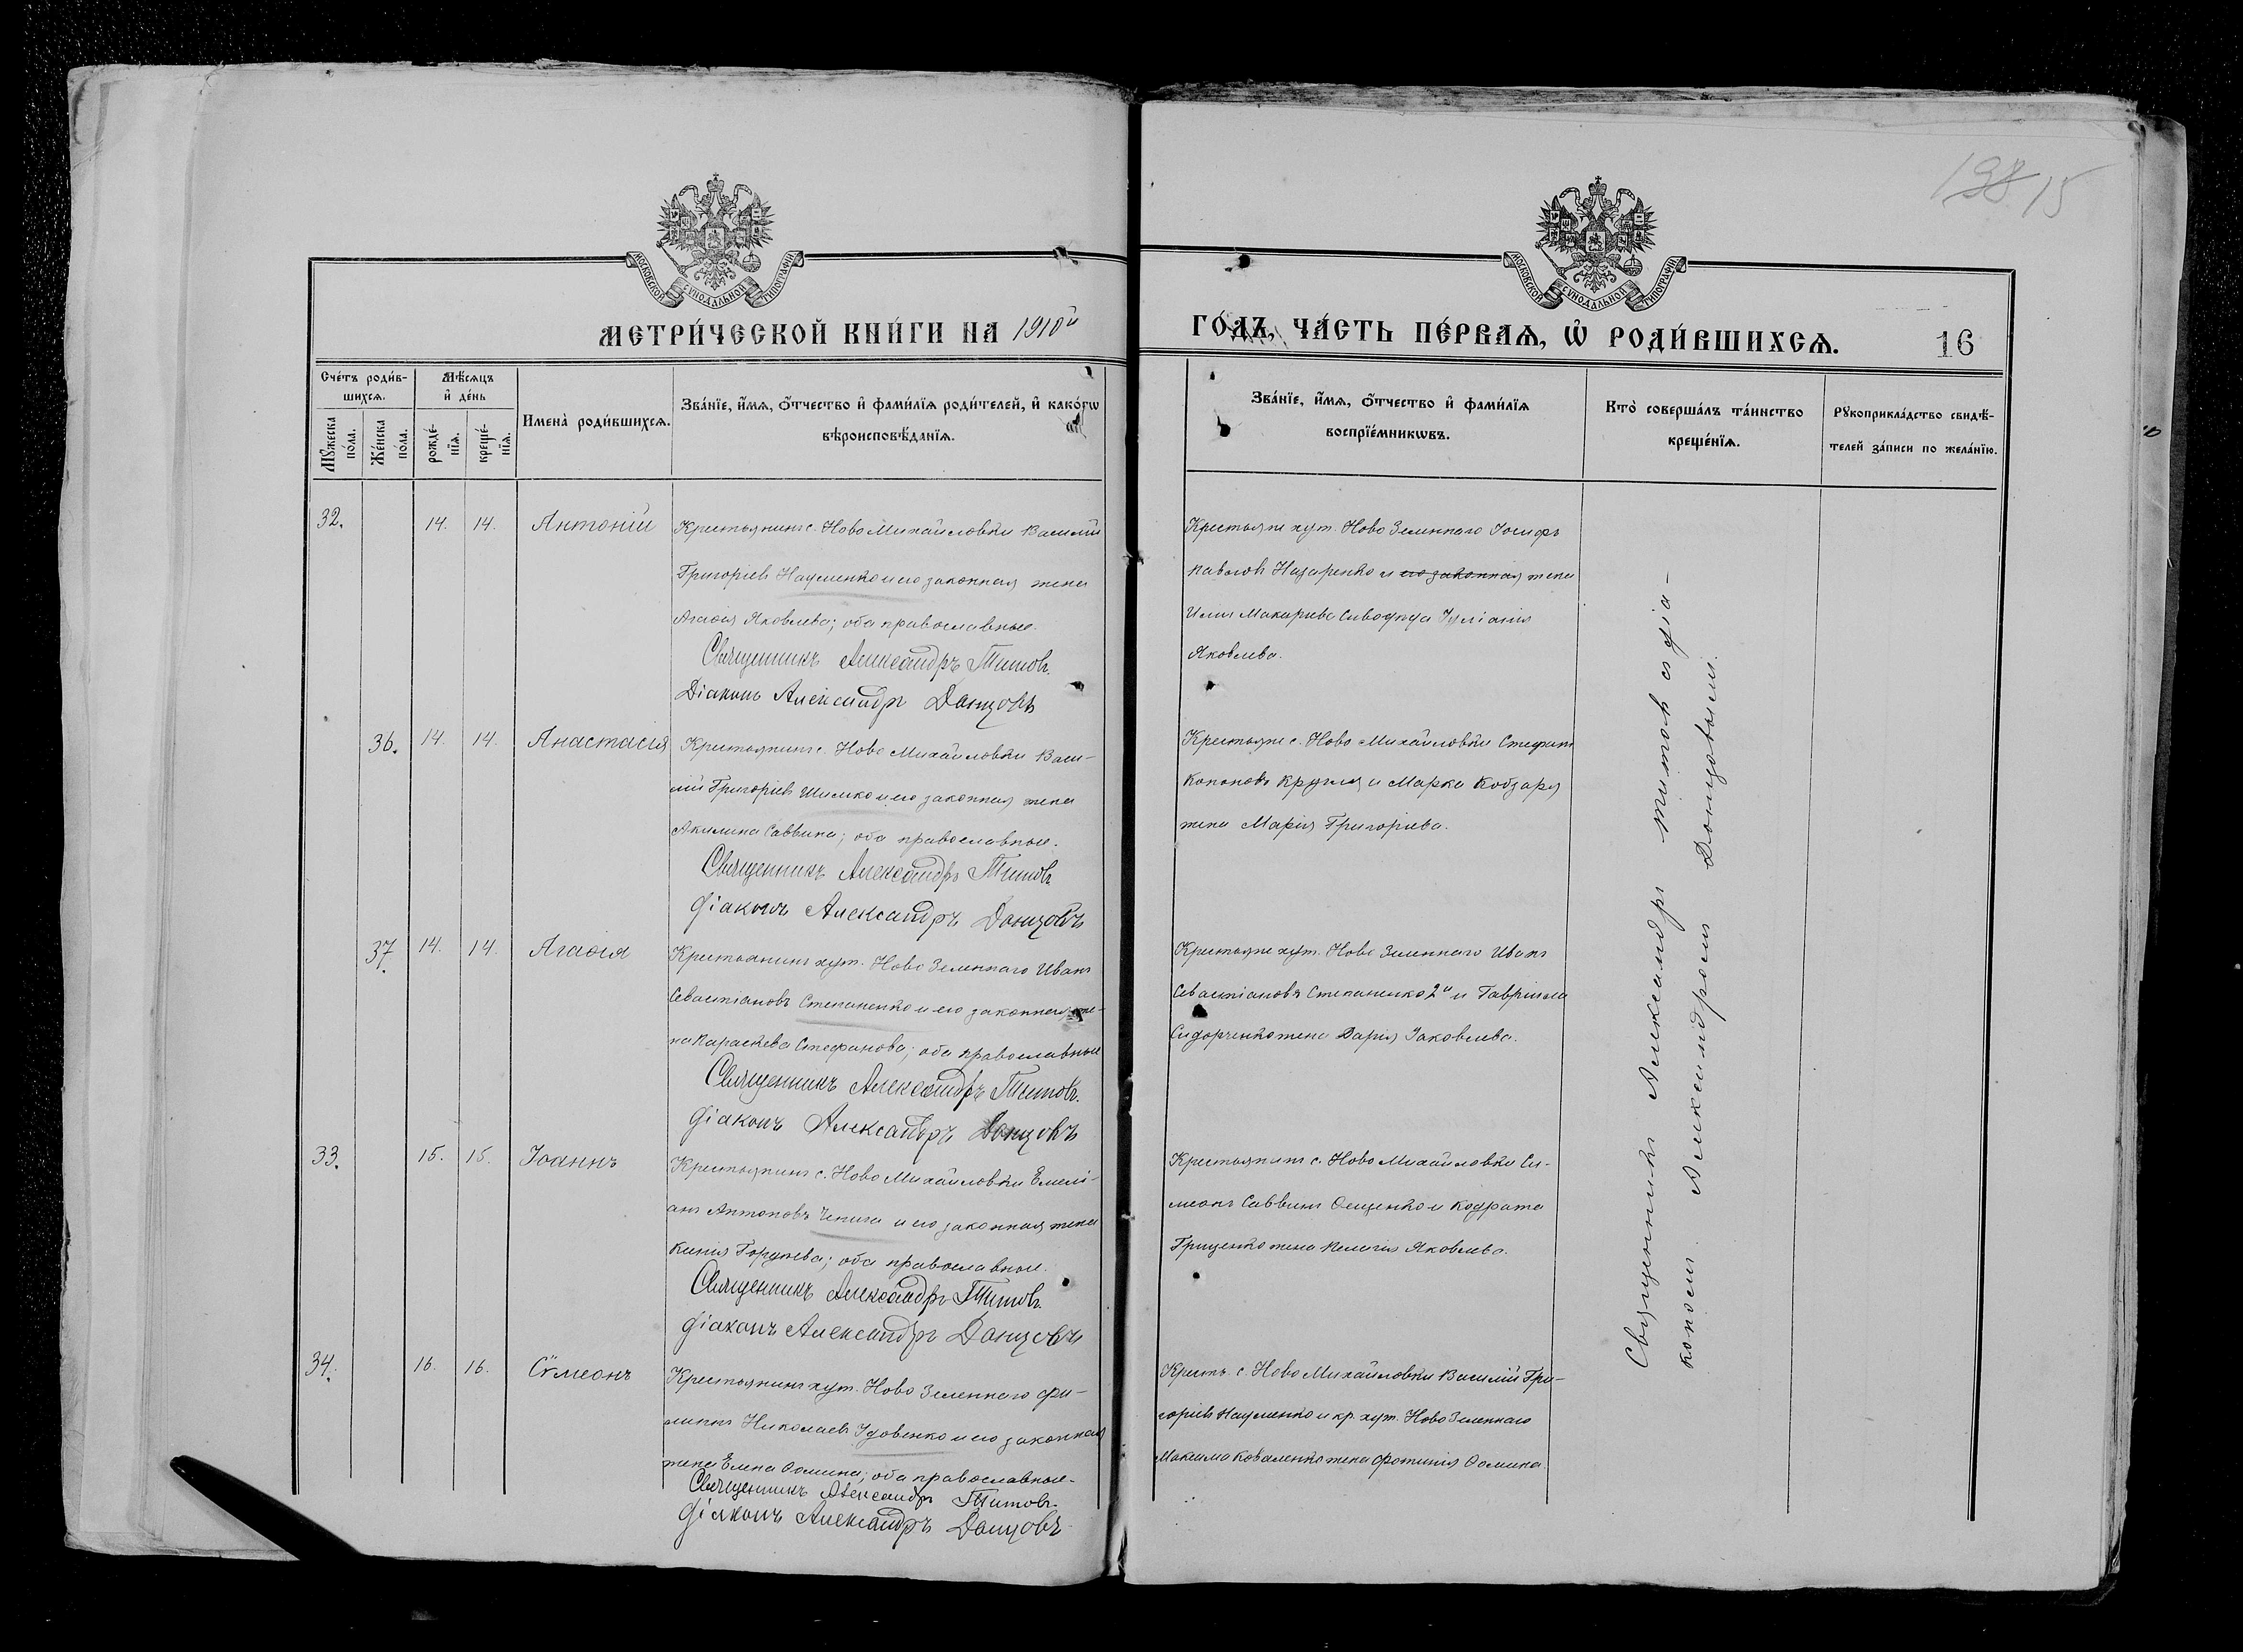 198 15
МОСКОВСКОЙ СѴНОДАЛЬНОЙ ТИПОГРАФІИ
МОСКОВСКОЙ СѴНОДАЛЬНОЙ ТИПОГРАФІИ
МЕТРИ́ЧЕСКОЙ КНИ́ГИ НА 1910й
ГО́ДЪ, ЧА́СТЬ ПЕ́РВАѦ, Ѡ҆ РОДИ́ВШИХСѦ.
16
Сче́тъ роди́в-
шихсѧ.
Мꙋ́жеска
по́ла.
Же́нска
по́ла.
Мѣ́сѧцъ
и҆ де́нь
рожде́-
нїѧ.
креще́-
нїѧ.
И҆мена̀ роди́вшихсѧ.
Зва́нїе, и҆́мѧ, ѻ҆́тчество и҆ фами́лїѧ роди́телей, и҆ како́гѡ
вѣроисповѣ́данїѧ.
Зва́нїе, и҆́мѧ, ѻ҆́тчество и҆ фами́лїѧ
воспрїе́мникѡвъ.
Кто̀ соверша́лъ та́инство
креще́нїѧ.
Рꙋкоприкла́дство свидѣ́-
телей за́писи по жела́нїю.
32. 14. 14. Антоній
Крестьянинъ с. Ново Михайловки Василій
Григоріевъ Науменко и его законная жена
Агаѳія Яковлева; оба православные.
Священникъ Александръ Титовъ.
Діаконъ Александръ Донцовъ
Крестьяне хут. Ново Зеленнаго Іосифъ
Павловъ Назаренко и его законная жена
Макарьева Іуліанія
Яковлева.
36. 14. 14. Анастасія
Крестьянинъ с. Ново Михайловки Васи-
лій Григоріевъ Шимко и его законная жена
Акилина Саввина; оба православные.
Священникъ Александръ Титовъ
Діаконъ Александръ Донцовъ
Крестьяне с. Ново Михайловки Стефанъ
Кононовъ и Марка Кобзаря
жена Марія Григорьева.
37. 14. 14. Агаѳія
Крестьянинъ хут. Ново Зеленнаго Иванъ
Севастіановъ Степаненко и его законная же-
на Параскева Стефанова; оба православные
Священникъ Александръ Титовъ.
Діаконъ Александръ Донцовъ
Крестьяне хут. Ново Зеленнаго Иванъ
Севастіановъ Степаненко 2й и Гавріила
Сидорченко жена Дарія Іаковлева.
33. 15. 15. Іоаннъ
Крестьянинъ с. Ново Михайловки Емелі-
анъ Антоновъ Чепига и его законная жена
оба православные.
Священникъ Александръ Титовъ.
Діаконъ Александръ Донцовъ
Крестьянинъ с. Ново Михайловки Си-
меонъ Саввинъ Ѳещенко и Кодрата
Гриценко жена Пелагія Яковлева.
34. 16. 16. Сѵмеонъ
Крестьянинъ хут. Ново Зеленнаго Фи-
липпъ Николаевъ Удовенко и его законная
жена Елена Ѳомина; оба православные.
Священникъ Александръ Титовъ.
Діаконъ Александръ Донцовъ
Крестъ. с. Ново Михайловки Василій Гри-
горіевъ Науменко и кр. хут. Ново Зеленнаго
Максима Коваленко жена Фотинія Ѳомина.
Священникъ Александръ Титовъ съ діа-
кономъ Александромъ Донцовымъ.